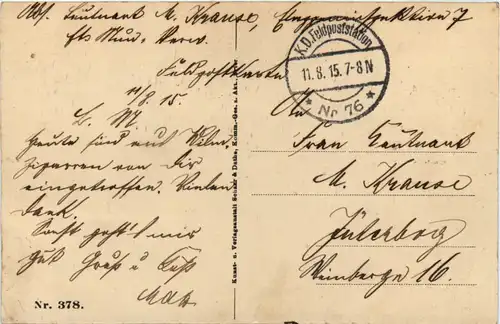 Abs. Leutnant M. Krause, Etappeninspektion 7
Feldpostkarte
11/8. 15.
L. M.
Heute sind auf
Zigarren von Dir
eingetroffen. Vielen
Dank.
Sonst geht's mir
gut Gruß u Kuß
Max
Nr. 378.
Kunst- u. Verlagsanstalt Seiner & Dathe, Komm.-Ges. a. Akt.
K.D. Feldpoststation
11.8.15. 7-8 N
* Nr 76 *
An
Frau Leutnant
M. Krause
Jüterbog
Weinberge 16.